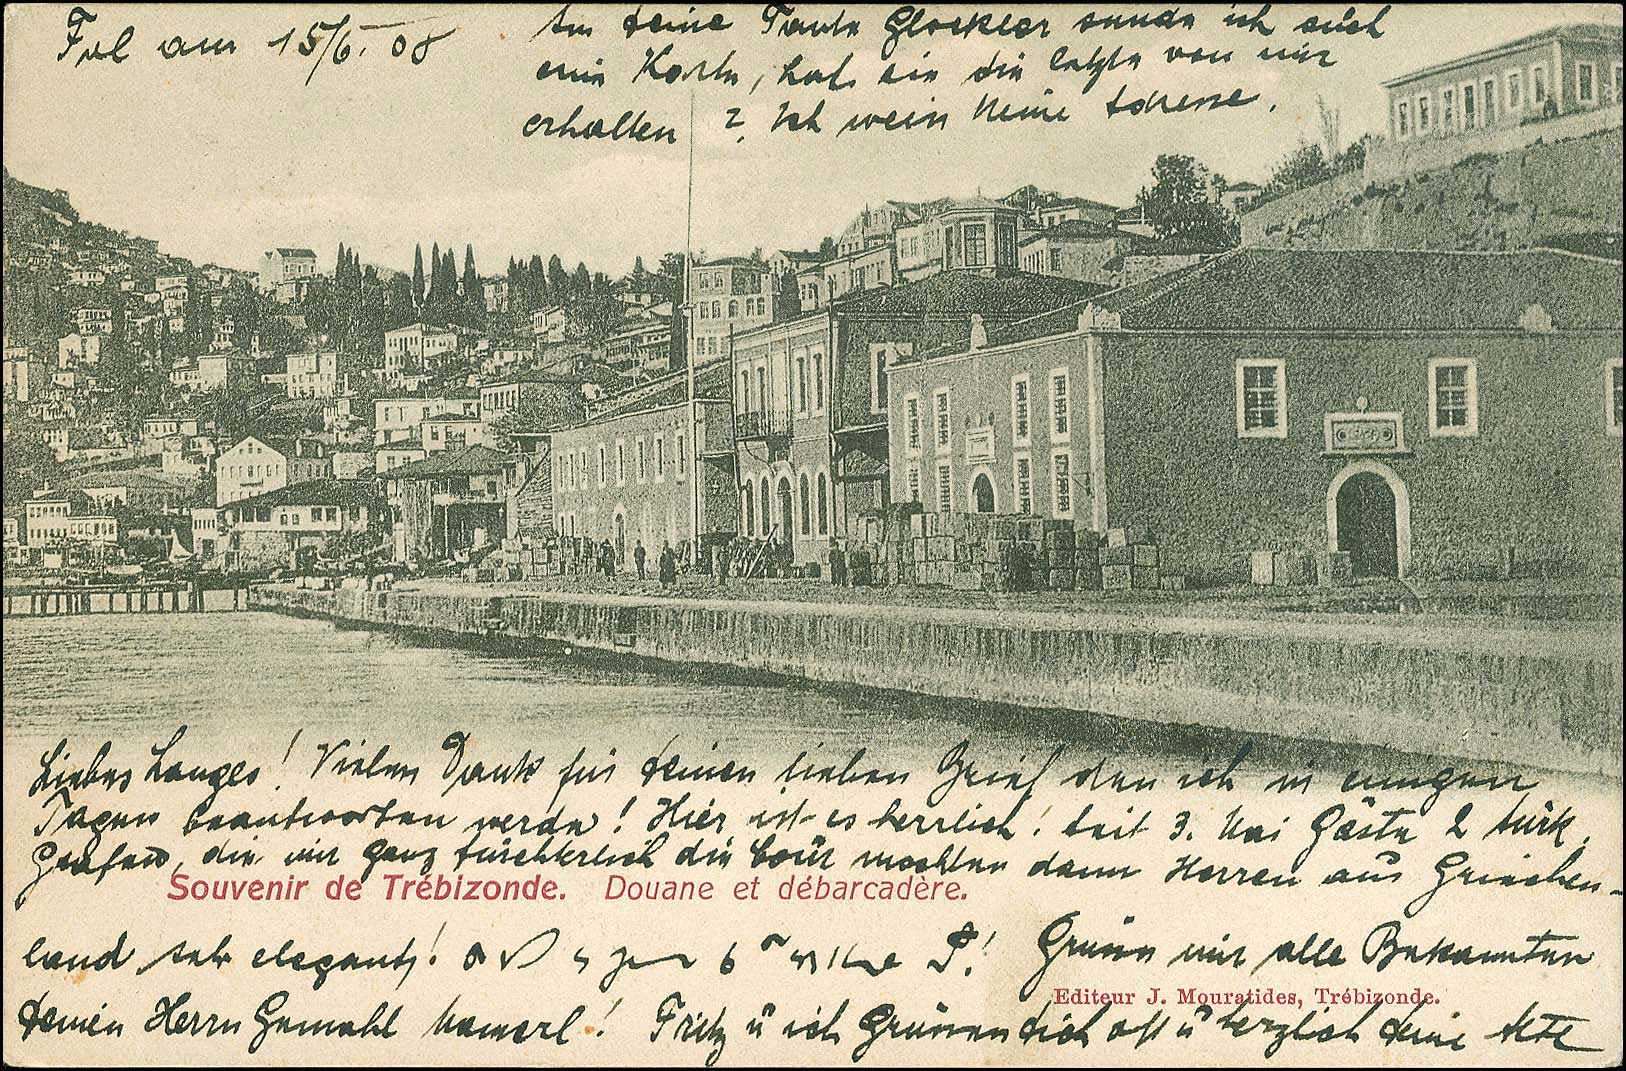 am 15/6. 08
An deine Tante Glockler sandte ich auch
eine Karte, hat sie die letzte von mir
erhalten ? Ich weis keine Adresse.
Liebes Langes! Vielen Dank für deinen lieben Brief den ich in einigen
Tagen beantworten werde! Hier ist es herrlich! Seit 3. Mai Gäste 2 türk.
die mir ganz fürchterlich die Cour machten dann Herren aus Griechen-
Souvenir de Trébizonde. Douane et débarcadère.
land sehr elegant!
Grüsse mir alle Bekannten
Editeur J. Mouratides, Trébizonde.
deinen Herrn Gemahl Fritz u ich Grüssen dich oft u herzlich deine Alte